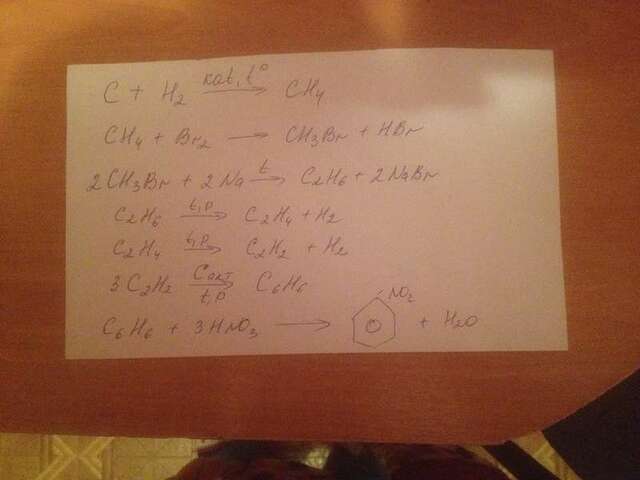 C + H2 kat, t° → CH4
CH4 + Br2 → CH3Br + HBr
2CH3Br + 2Na t → C2H6 + 2NaBr
C2H6 t,p → C2H4 + H2
C2H4 t,p → C2H2 + H2
3C2H2 Cакт t,p → C6H6
C6H6 + 3HNO3 → NO2 + H2O